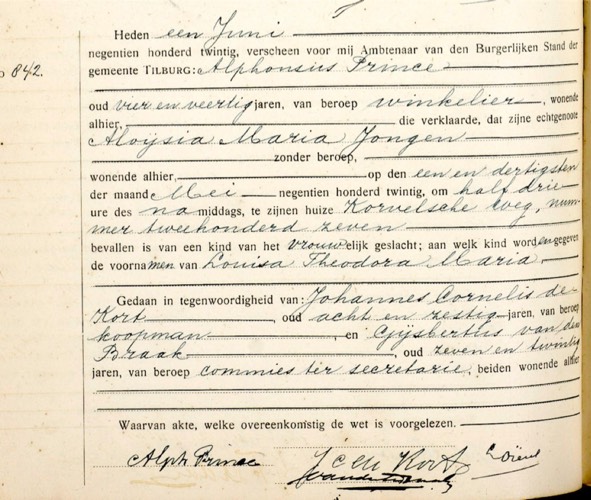 Heden een Juni
negentien honderd twintig, verscheen voor mij Ambtenaar van den Burgerlijken Stand der
o 842.
gemeente TILBURG: Alphonsius Prince
oud vier en veertig jaren, van beroep winkelier, wonende
alhier, die verklaarde, dat zijne echtgenoote
Aloÿsia Maria Jongen
zonder beroep,
wonende alhier, op den een en dertigsten
der maand Mei negentien honderd twintig, om half drie
ure des na middags, te zijnen huize Korvelsche weg, num-
mer tweehonderd zeven
bevallen is van een kind van het vrouwelijk geslacht; aan welk kind worden gegeven
de voornamen van Louisa Theodora Maria.
Gedaan in tegenwoordigheid van: Johannes Cornelis de
Kort, oud acht en zestig jaren, van beroep
koopman, en Gijsbertus van den
Braak, oud zeven en twintig
jaren, van beroep commies ter secretarie, beiden wonende alhier
Waarvan akte, welke overeenkomstig de wet is voorgelezen.
Alph Prince J C de Kort